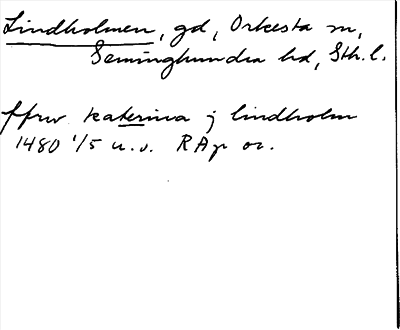 Lindholmen, gd, Orkesta sn,
Seminghundra hd, Sth. l.
ffrw katerina j lindholm
1480 1/5 u.o. RAp or.